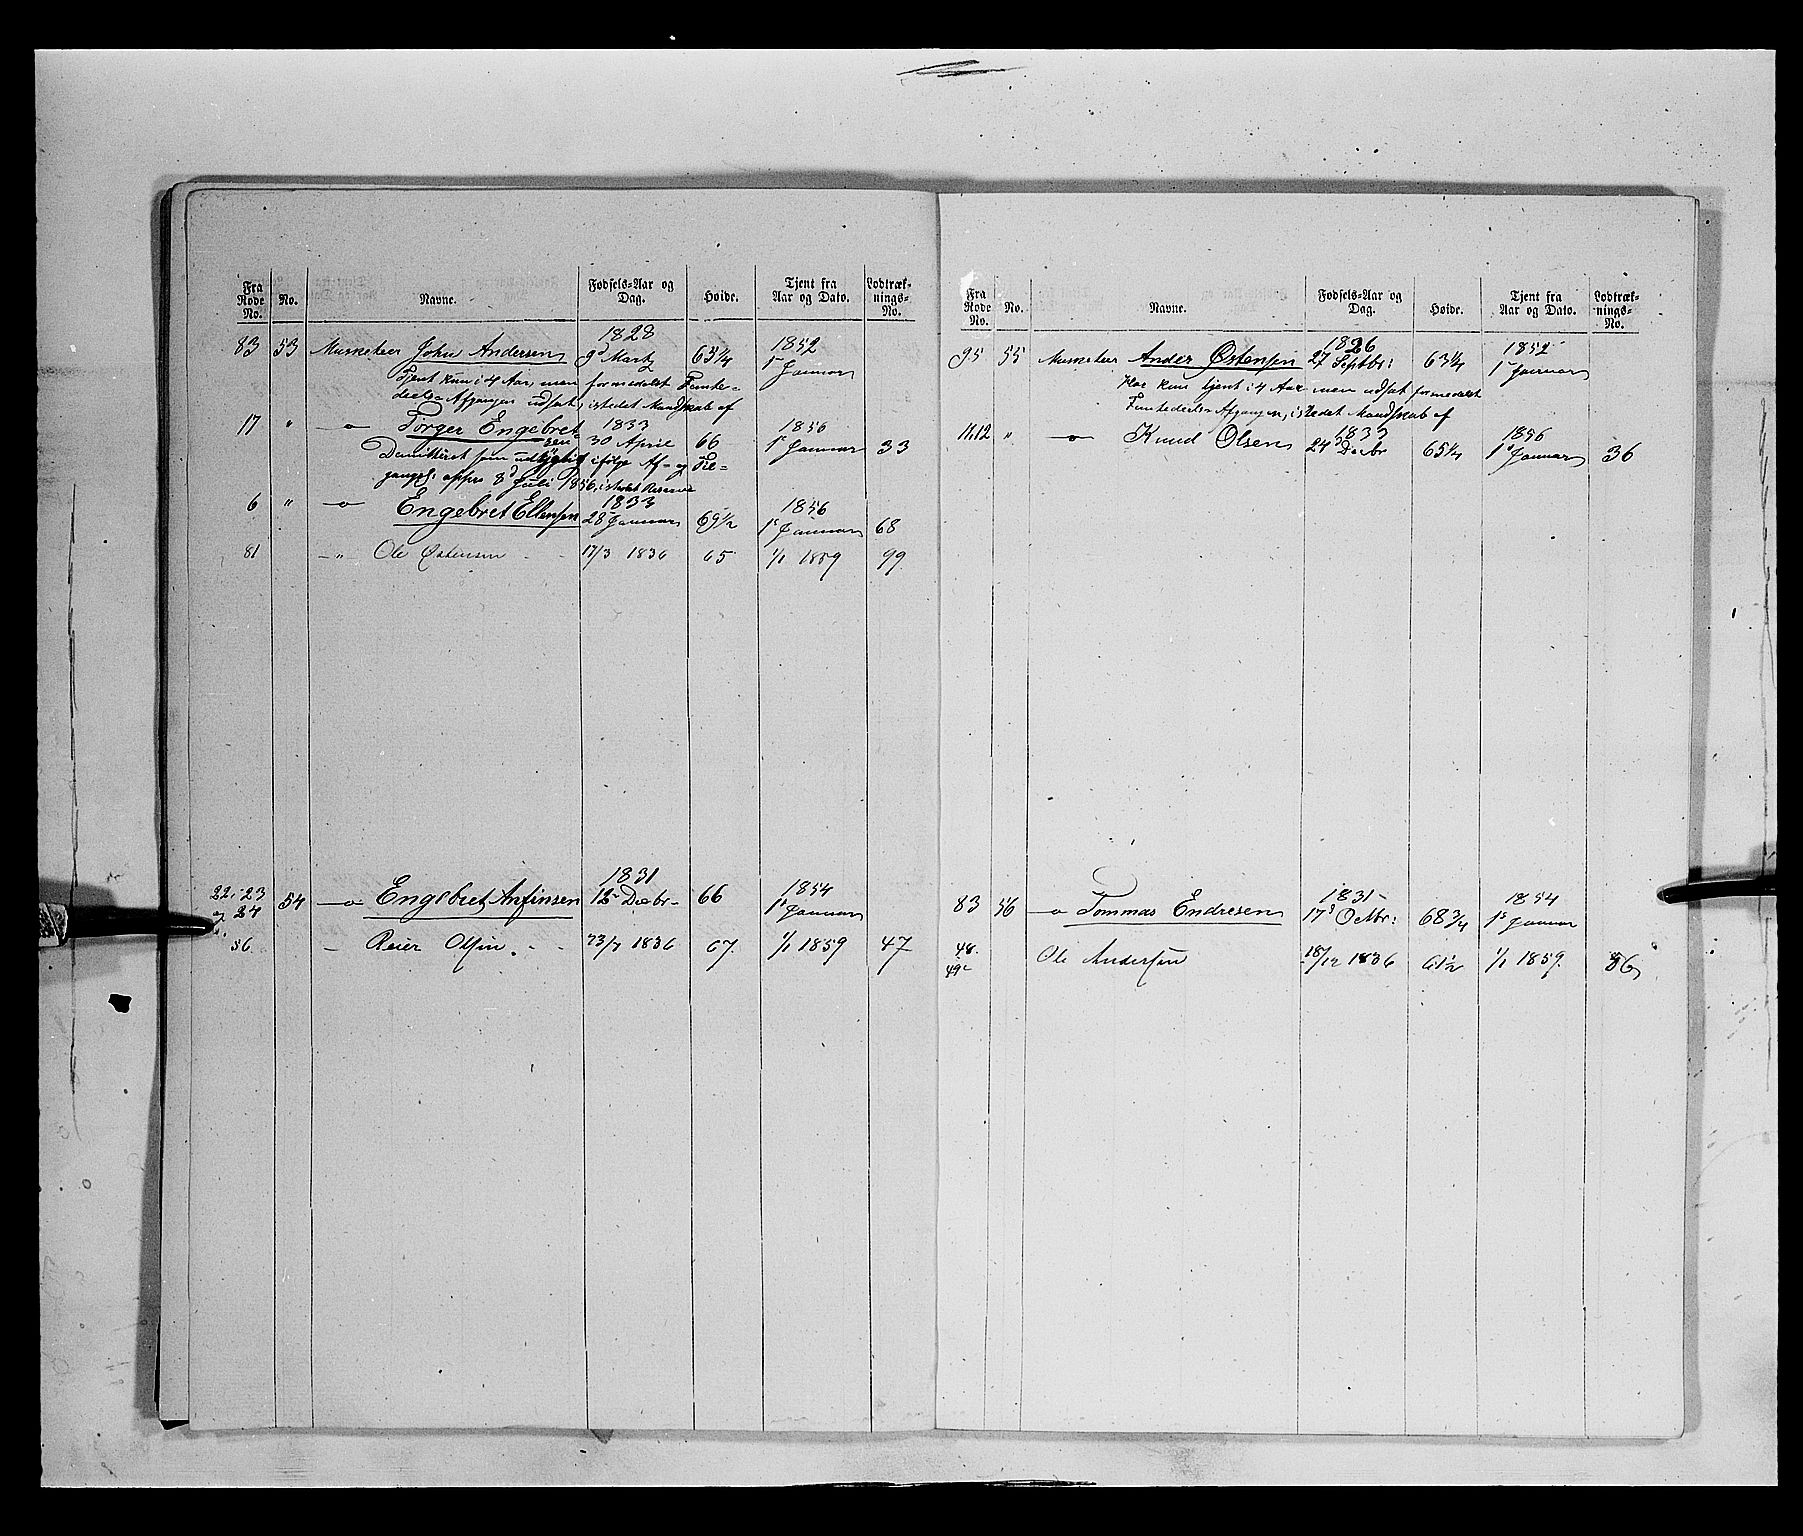 Fra Rode No. No. Navne. Fødsels-Aar og Dag. Høide. Tjent fra Aar og Dato. Lodtræk-nings-No.
1828 1852
83 53 Musketeer John Andersen 9d Martz 63 1/4 1ste Januar
Tjent kun i 4 Aar, men formedelst Femte-
deels Afgangen udsat, istedet Mandskab af
17 " —o— Torger Engebret- 1833 1856
sen 30 April 66 1ste Januar 33
Dimitteret som udygtig ifølge Af- og Til-
gangsl. appro 8d Juli 1856, istedet Reserve
6 " —o— Engebret Ellensen 1833 1856
28 Januar 69 1/2 1ste Januar 68
81 — " Ole Østensen 17/3 1836 65 1/1 1859 99
1831 1854
22, 23 og 24 54 —o— Engebret Anfinsen 12 Decbr 66 1ste Januar
56. — Reier Olsen. 23/7 1836 67. 1/1 1859 47
Fra Rode No. No. Navne. Fødsels-Aar og Dag. Høide. Tjent fra Aar og Dato. Lodtræk-nings-No.
1826 1852
95 55 Musketeer Ander Østensen 27 Septbr: 63 1/4 1ste Januar
Har kun tjent i 4 Aar men udsat formedelst
Femtedeels Afgangen, istedet Mandskab af
11.12 " —o— Knud Olsen 1833 1856
24 Decbr 65 1/4 1ste Januar 36
1831 1854
83 56 —o— Tommas Endresen 17d Octbr: 68 3/4 1ste Januar
48. 49 Ole Andersen 18/12 1836 61 1/2 1/1 1859. 86